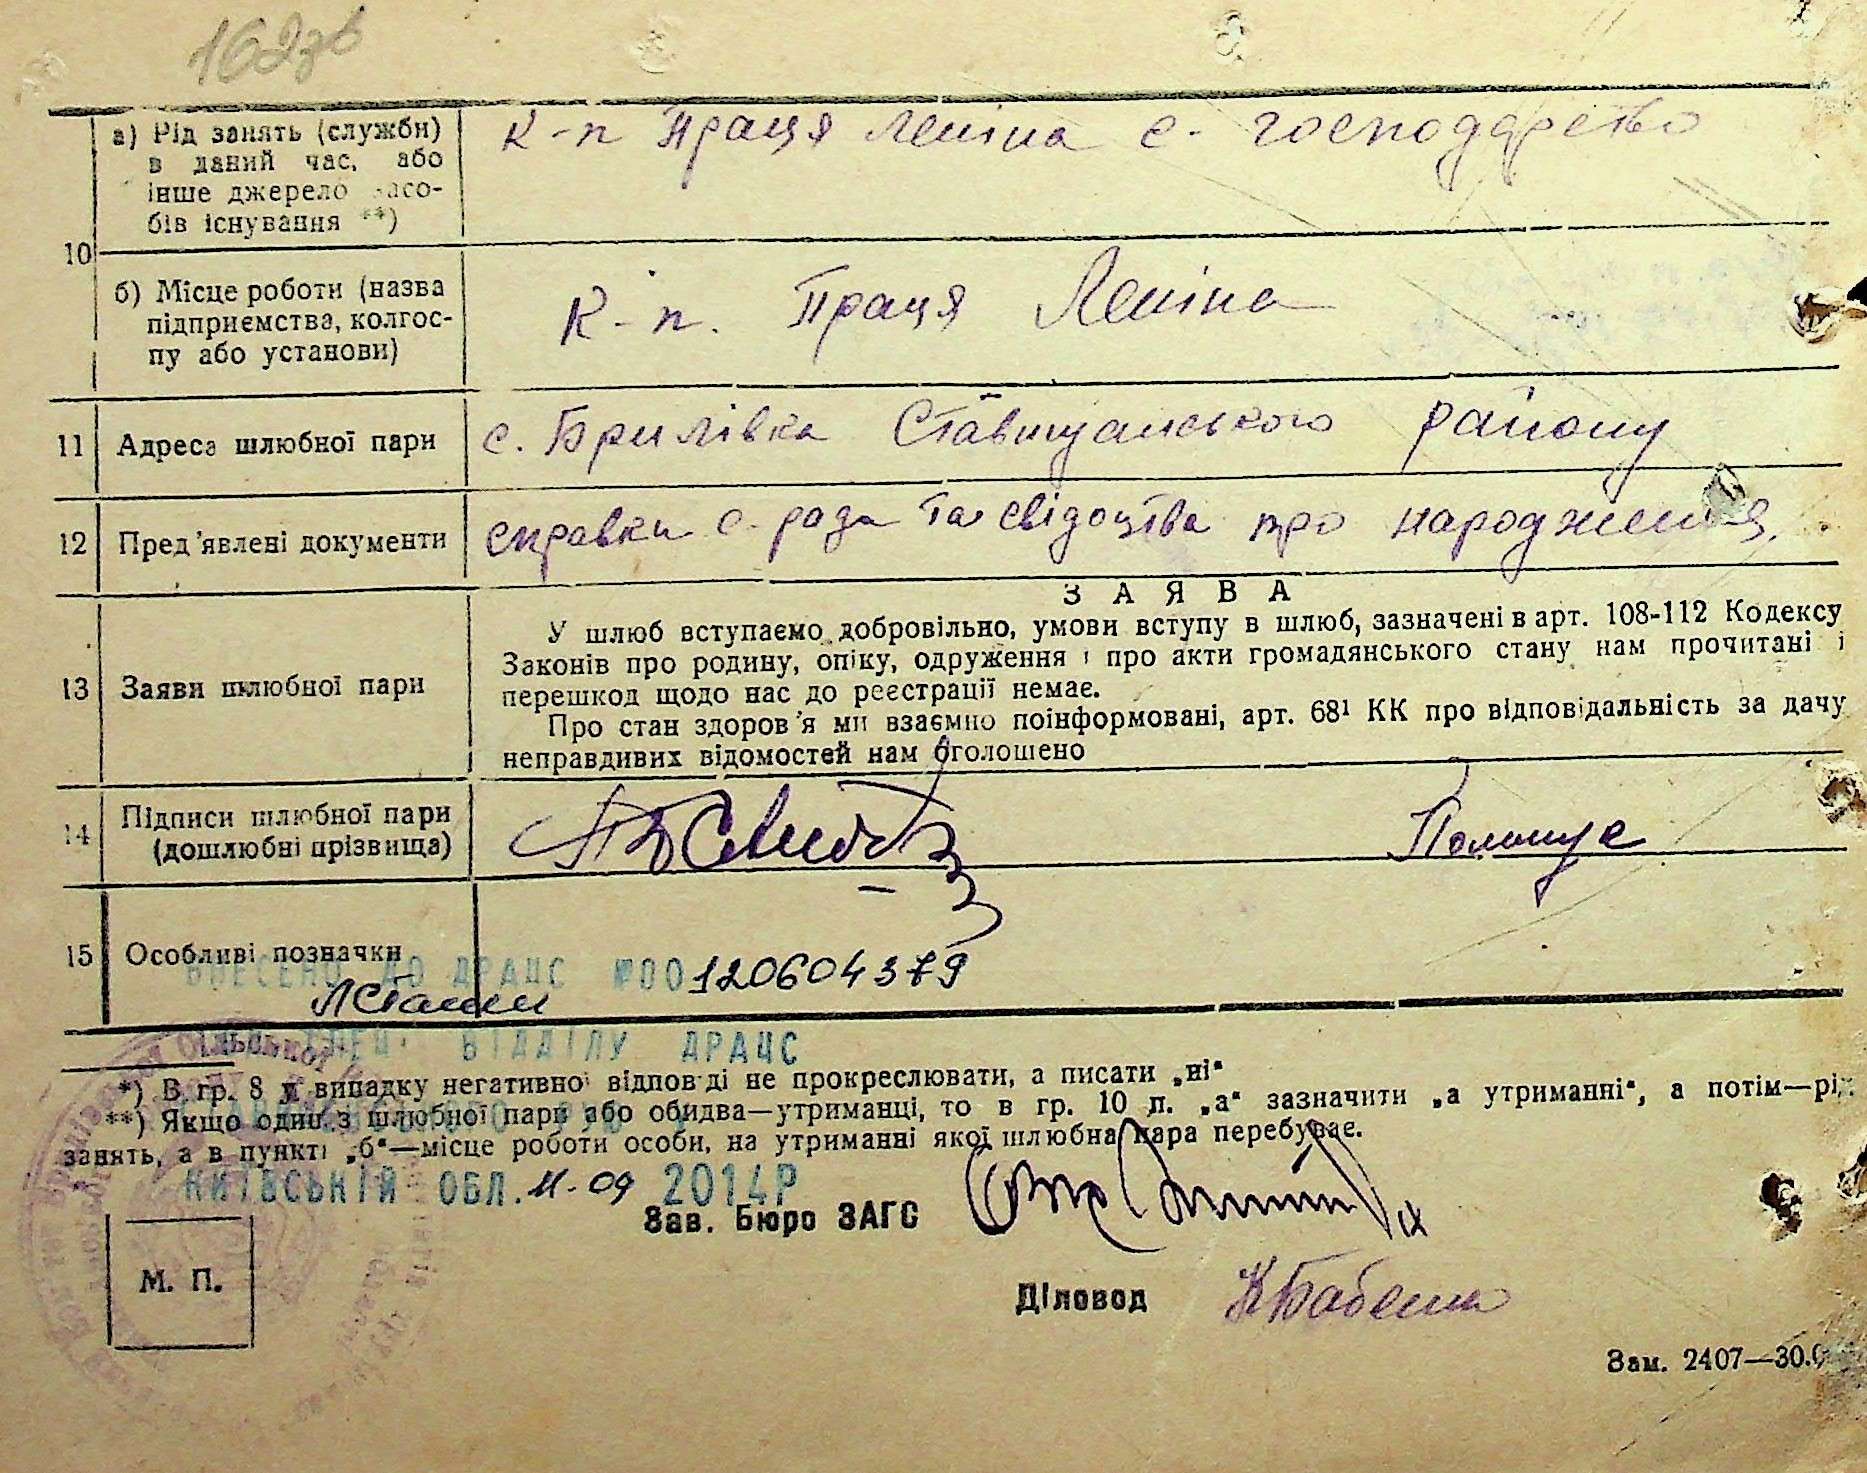 162зв
10
а) Рід занять (служби)
в даний час, або
інше джерело засо-
бів існування **)
к-п Праця Леніна с-господарство
б) Місце роботи (назва
підприємства, колгос-
пу або установи)
К-п. Праця Леніна
11 Адреса шлюбної пари
с. Брилівка Ставищанського району
12 Пред'явлені документи
справки с-рада та свідоцтва про народження,
ЗАЯВА
13 Заяви шлюбної пари
У шлюб вступаємо добровільно, умови вступу в шлюб, зазначені в арт. 108-112 Кодексу
Законів про родину, опіку, одруження і про акти громадянського стану нам прочитані і
перешкод щодо нас до реєстрації немає.
Про стан здоров'я ми взаємно поінформовані, арт. 68¹ КК про відповідальність за дачу
неправдивих відомостей нам оголошено
14 Підписи шлюбної пари
(дошлюбні прізвища)
15 Особливі позначки
ВНЕСЕНО ДО ДРАЦС №00120604379
ВІДДІЛУ ДРАЦС
*) В гр. 8 у випадку негативної відповіді не прокреслювати, а писати „ні“
**) Якщо один з шлюбної пари або обидва—утриманці, то в гр. 10 п. „а“ зазначити „а утриманні“, а потім—рід
занять, а в пункті „б“—місце роботи особи, на утриманні якої шлюбна пара перебуває.
КИЇВСЬКІЙ ОБЛ. 11-09 2014Р
Зав. Бюро ЗАГС
М. П.
Діловод
Зам. 2407—30.